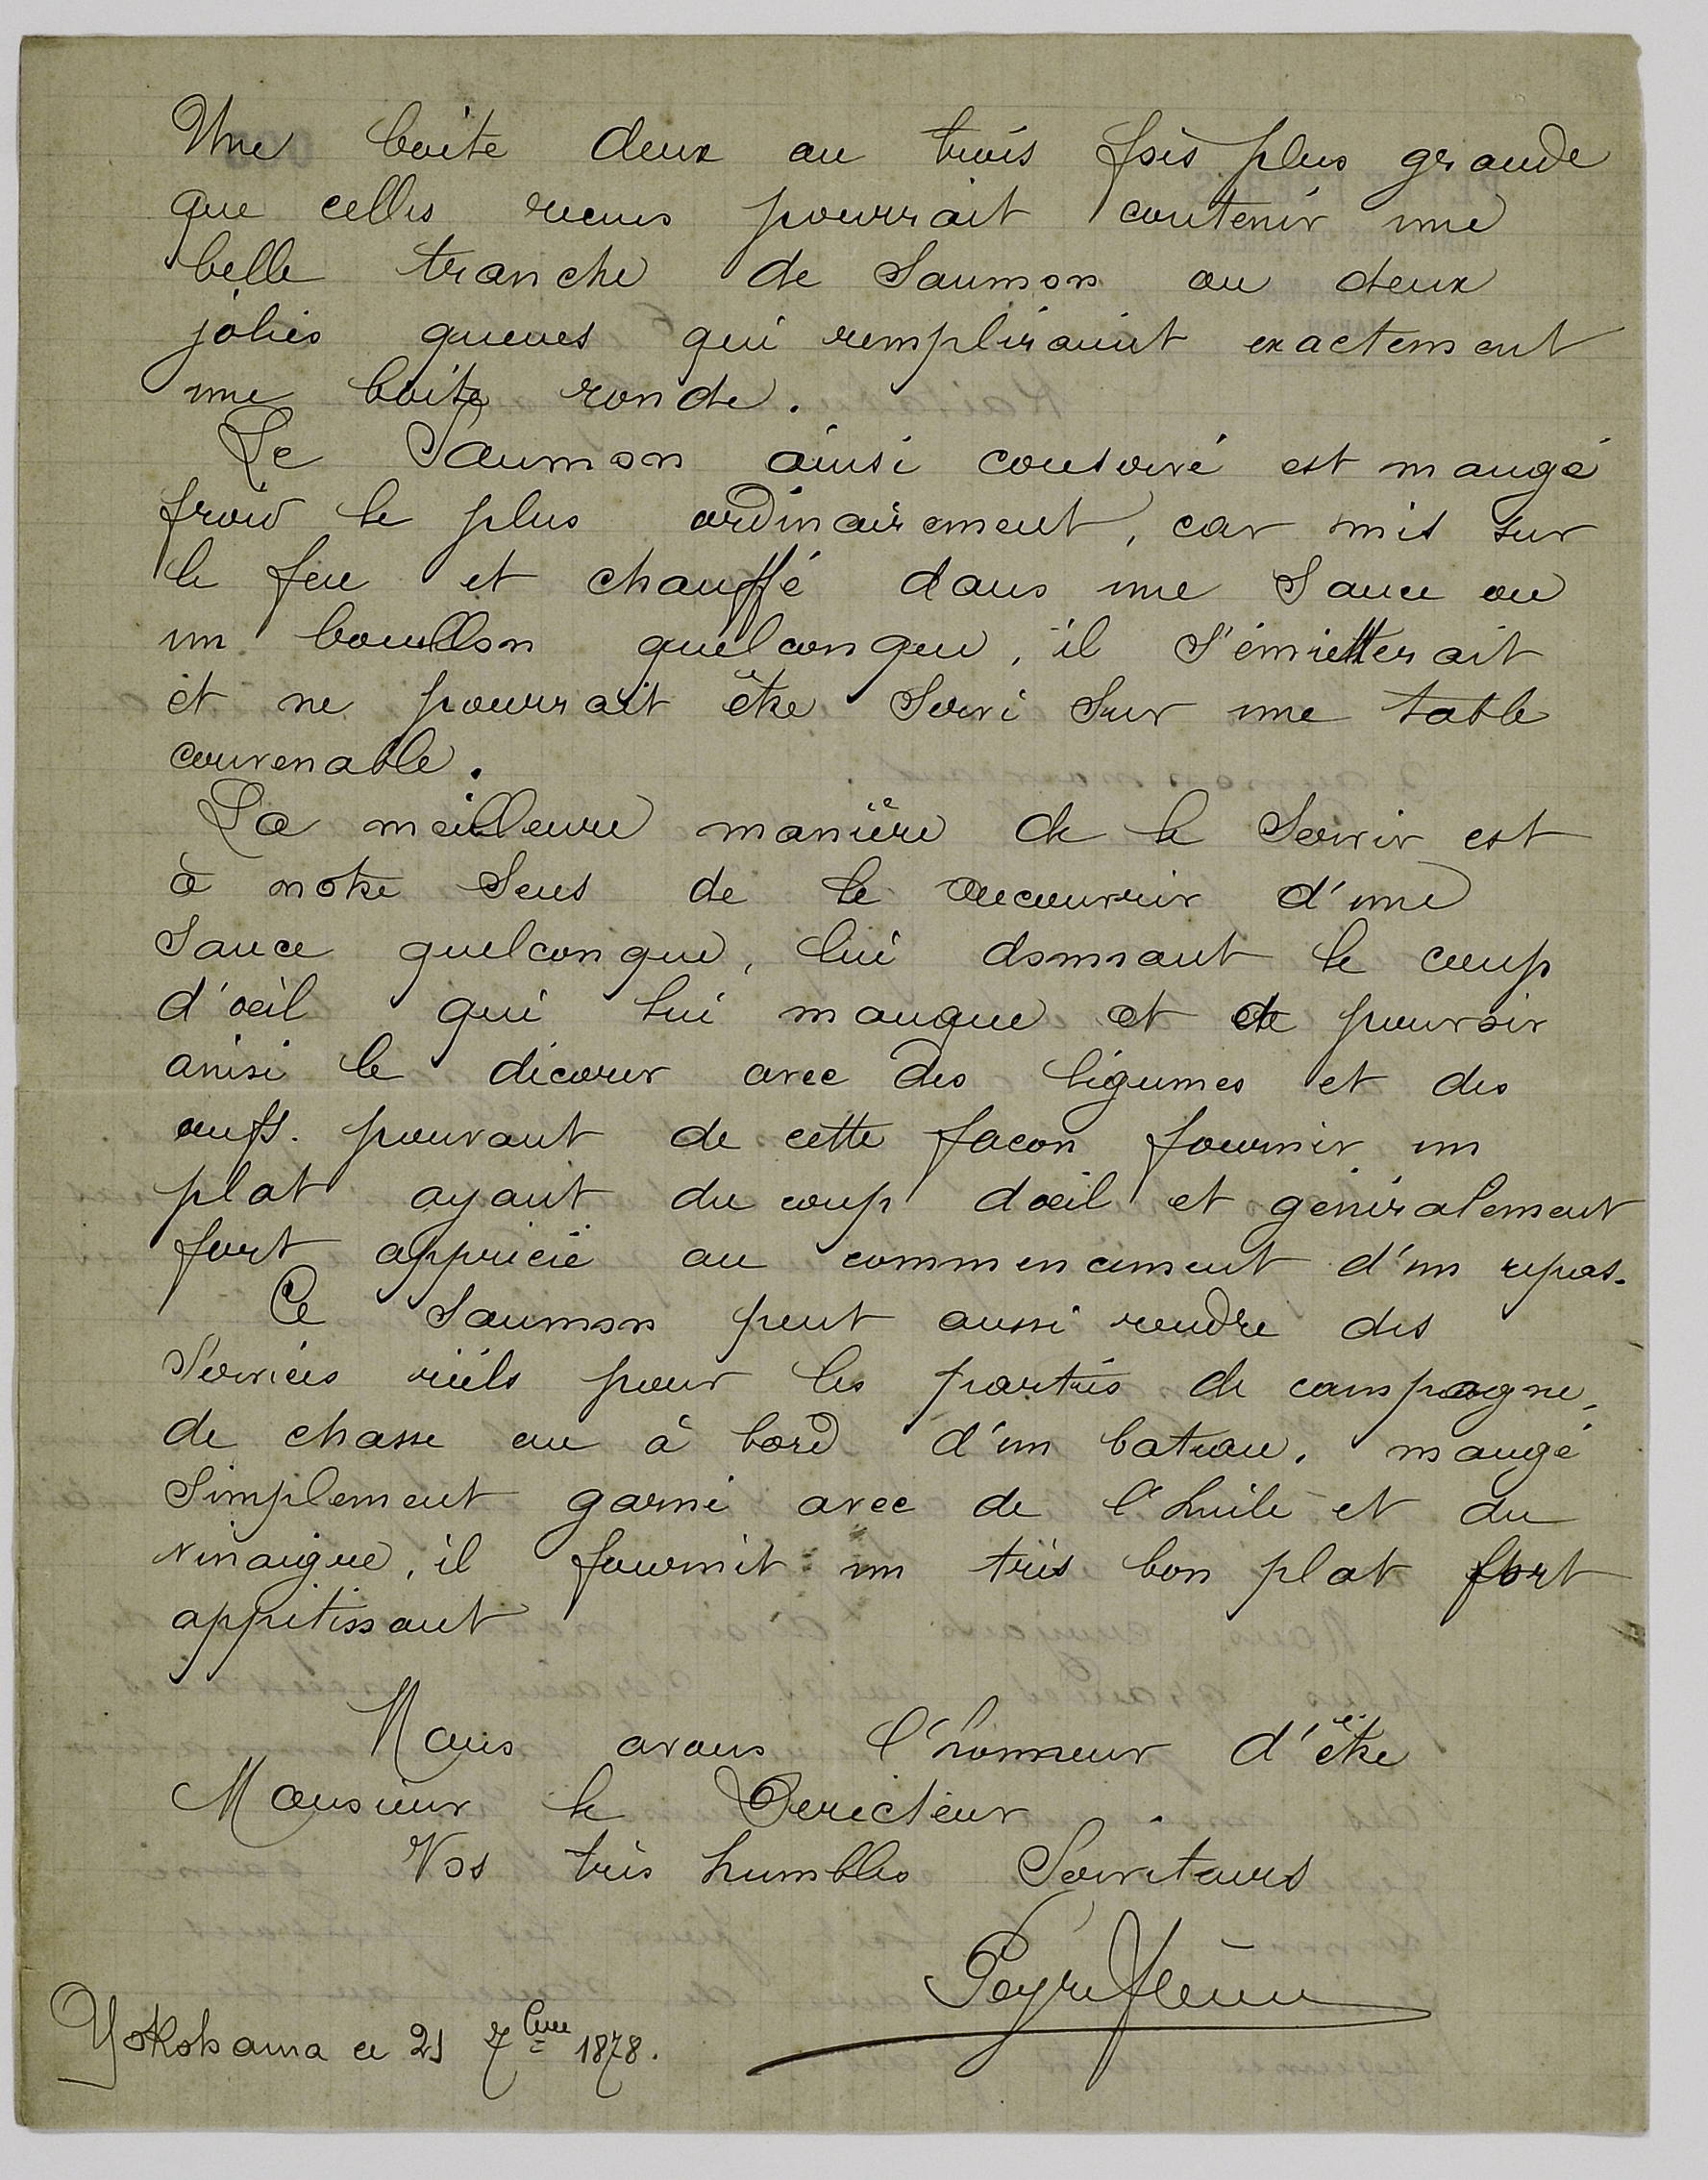 Une boite deux ou trois fois plus grande
que celles recues pourrait contenir une
belle tranche de Saumon ou deux
jolies queues qui rempliraient exactement
une boite ronde.
Le Saumon ainsi conservé est mangé
froid le plus ordinairement, car mis sur
le feu et chauffé dans une Sauce ou
un bouillon quelconque, il S'émietterait
et ne pourrait être Servi Sur une table
convenable.
La meilleure manière de le Servir est
à notre Sens de le recouvrir d'une
Sauce quelconque, lui donnant le coup
d'oeil qui lui manque et de pouvoir
ainsi le décorer avec des légumes et des
oeufs. pouvant de cette facon fournir un
plat ayant du coup doeil et généralement
fort apprécié au commencement d'un repas.
Ce Saumon peut aussi rendre des
Services réels pour les parties de campagne,
de chasse ou à bord d'un bateau. mangé
Simplement garni avec de l'huile et du
vinaigre, il fournit un très bon plat fort
appétissant
Nous avons l'honneur d'être
Monsieur le Derecteur
Vos très humbles Serviteurs
Peyre frères
Yokohama ce 21 7bre 1878.